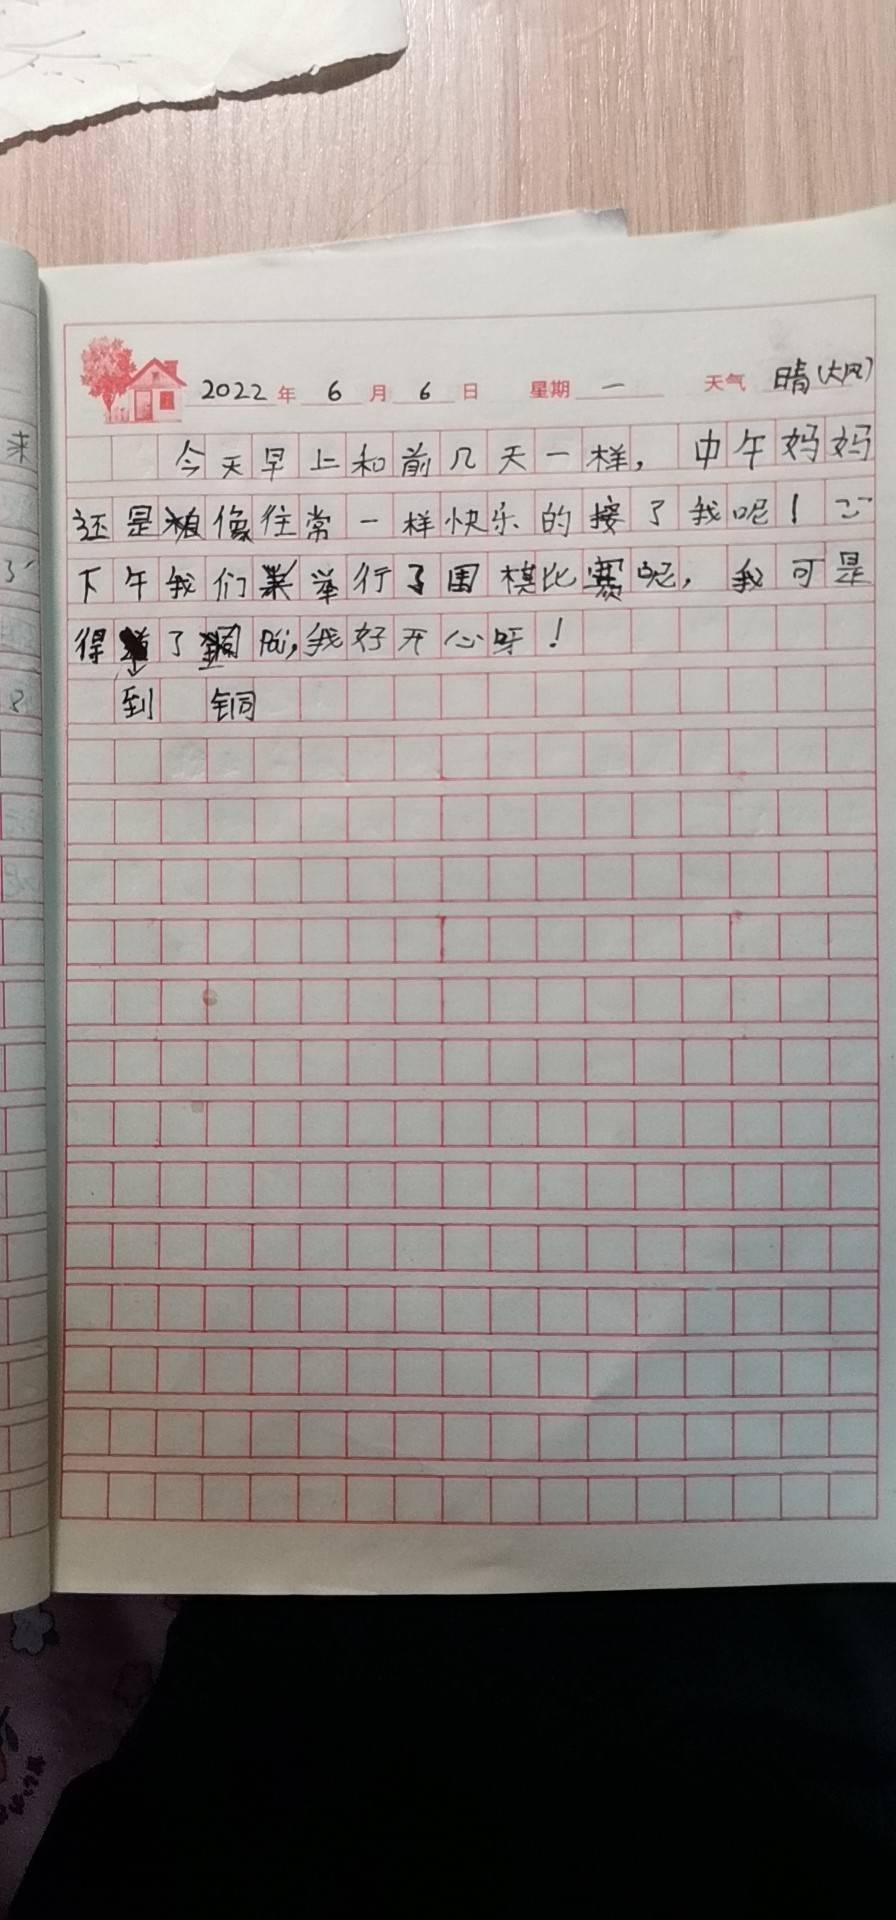 2022年 6月 6日 星期 一 天气 晴(大风)
今天早上和前几天一样,中午妈妈
还是像往常一样快乐的接了我呢!
下午我们举行了围棋比赛呢,我可是
得了牌,我好开心呀!
到 铜
来